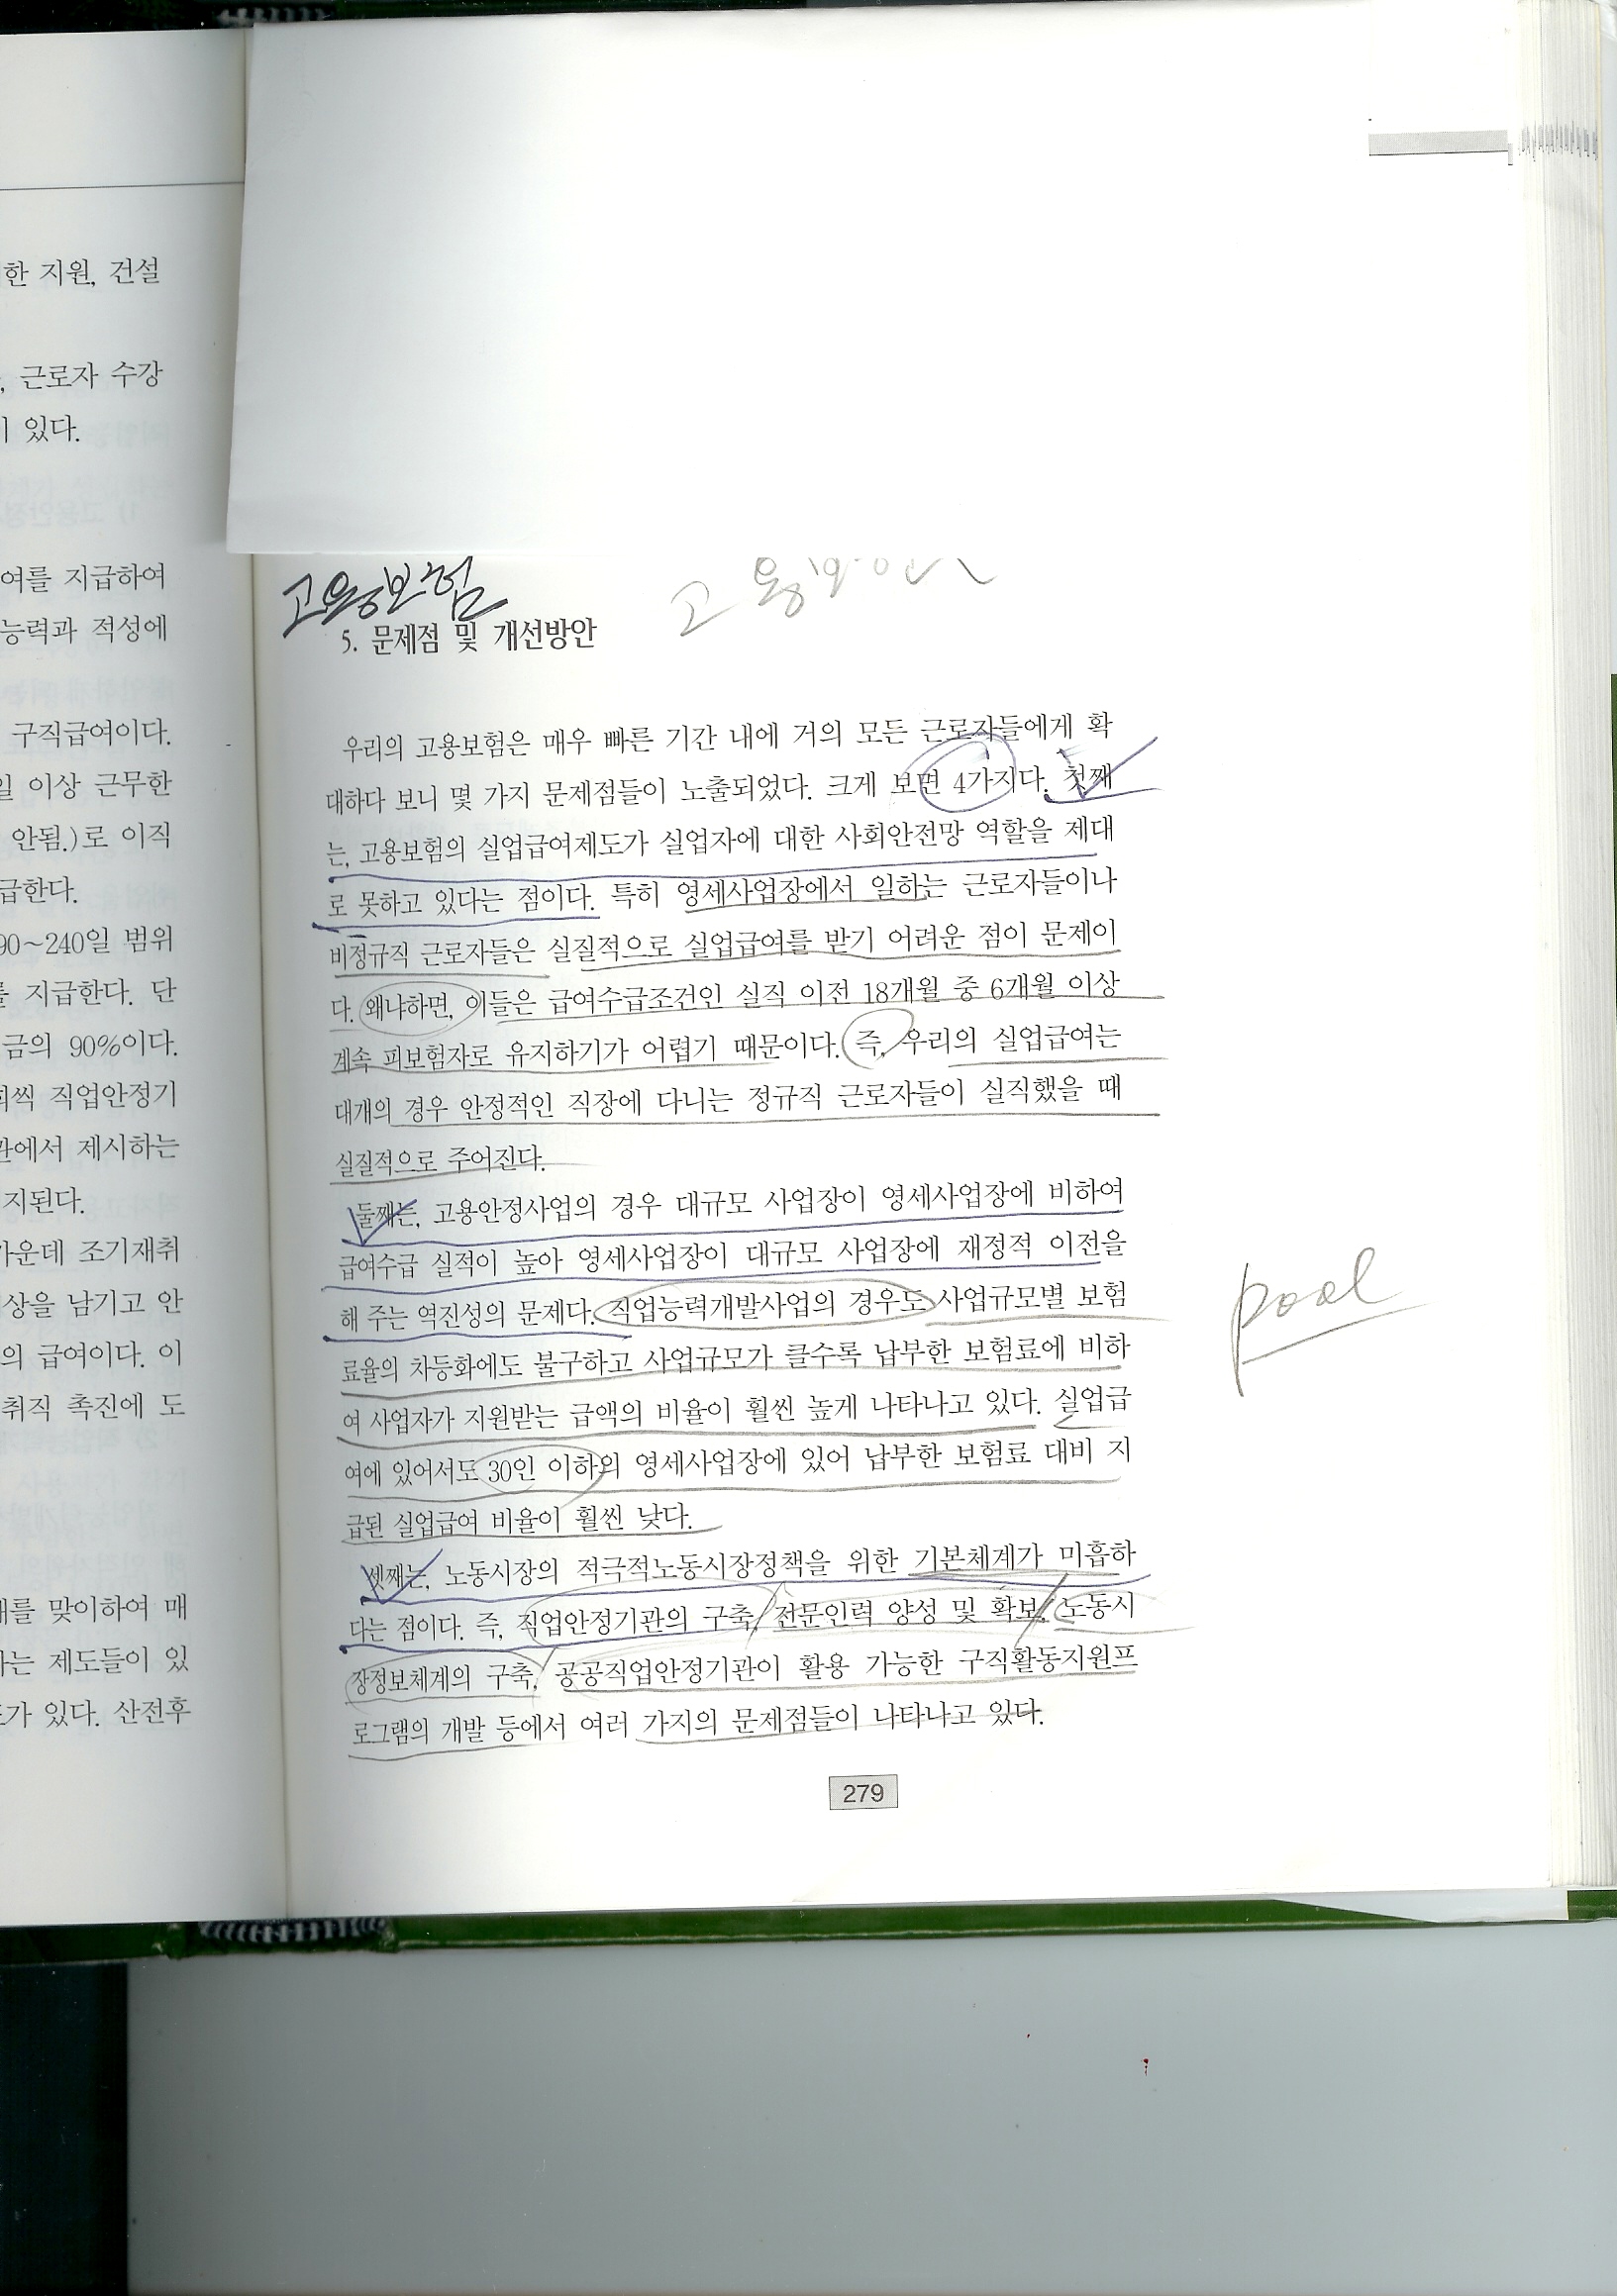 한 지원, 건설
, 근로자 수강
있다.
여를 지급하여
능력과 적성에
구직급여이다.
일 이상 근무한
안됨.)로 이직
급한다.
90~240일 범위
를 지급한다. 단
금의 90%이다.
회씩 직업안정기
관에서 제시하는
지된다.
가운데 조기재취
상을 남기고 안
의 급여이다. 이
취직 촉진에 도
를 맞이하여 매
는 제도들이 있
가 있다. 산전후
고용보험
고용보험
5. 문제점 및 개선방안
우리의 고용보험은 매우 빠른 기간 내에 거의 모든 근로자들에게 확
대하다 보니 몇 가지 문제점들이 노출되었다. 크게 보면 4가지다. 첫째
는, 고용보험의 실업급여제도가 실업자에 대한 사회안전망 역할을 제대
로 못하고 있다는 점이다. 특히 영세사업장에서 일하는 근로자들이나
비정규직 근로자들은 실질적으로 실업급여를 받기 어려운 점이 문제이
다. 왜냐하면, 이들은 급여수급조건인 실직 이전 18개월 중 6개월 이상
계속 피보험자로 유지하기가 어렵기 때문이다. 즉, 우리의 실업급여는
대개의 경우 안정적인 직장에 다니는 정규직 근로자들이 실직했을 때
실질적으로 주어진다.
둘째는, 고용안정사업의 경우 대규모 사업장이 영세사업장에 비하여
급여수급 실적이 높아 영세사업장이 대규모 사업장에 재정적 이전을
해 주는 역진성의 문제다. 직업능력개발사업의 경우도 사업규모별 보험
료율의 차등화에도 불구하고 사업규모가 클수록 납부한 보험료에 비하
여 사업자가 지원받는 급액의 비율이 훨씬 높게 나타나고 있다. 실업급
여에 있어서도 30인 이하의 영세사업장에 있어 납부한 보험료 대비 지
급된 실업급여 비율이 훨씬 낮다.
셋째는, 노동시장의 적극적노동시장정책을 위한 기본체계가 미흡하
다는 점이다. 즉, 직업안정기관의 구축, 전문인력 양성 및 확보, 노동시
장정보체계의 구축, 공공직업안정기관이 활용 가능한 구직활동지원프
로그램의 개발 등에서 여러 가지의 문제점들이 나타나고 있다.
pool
279